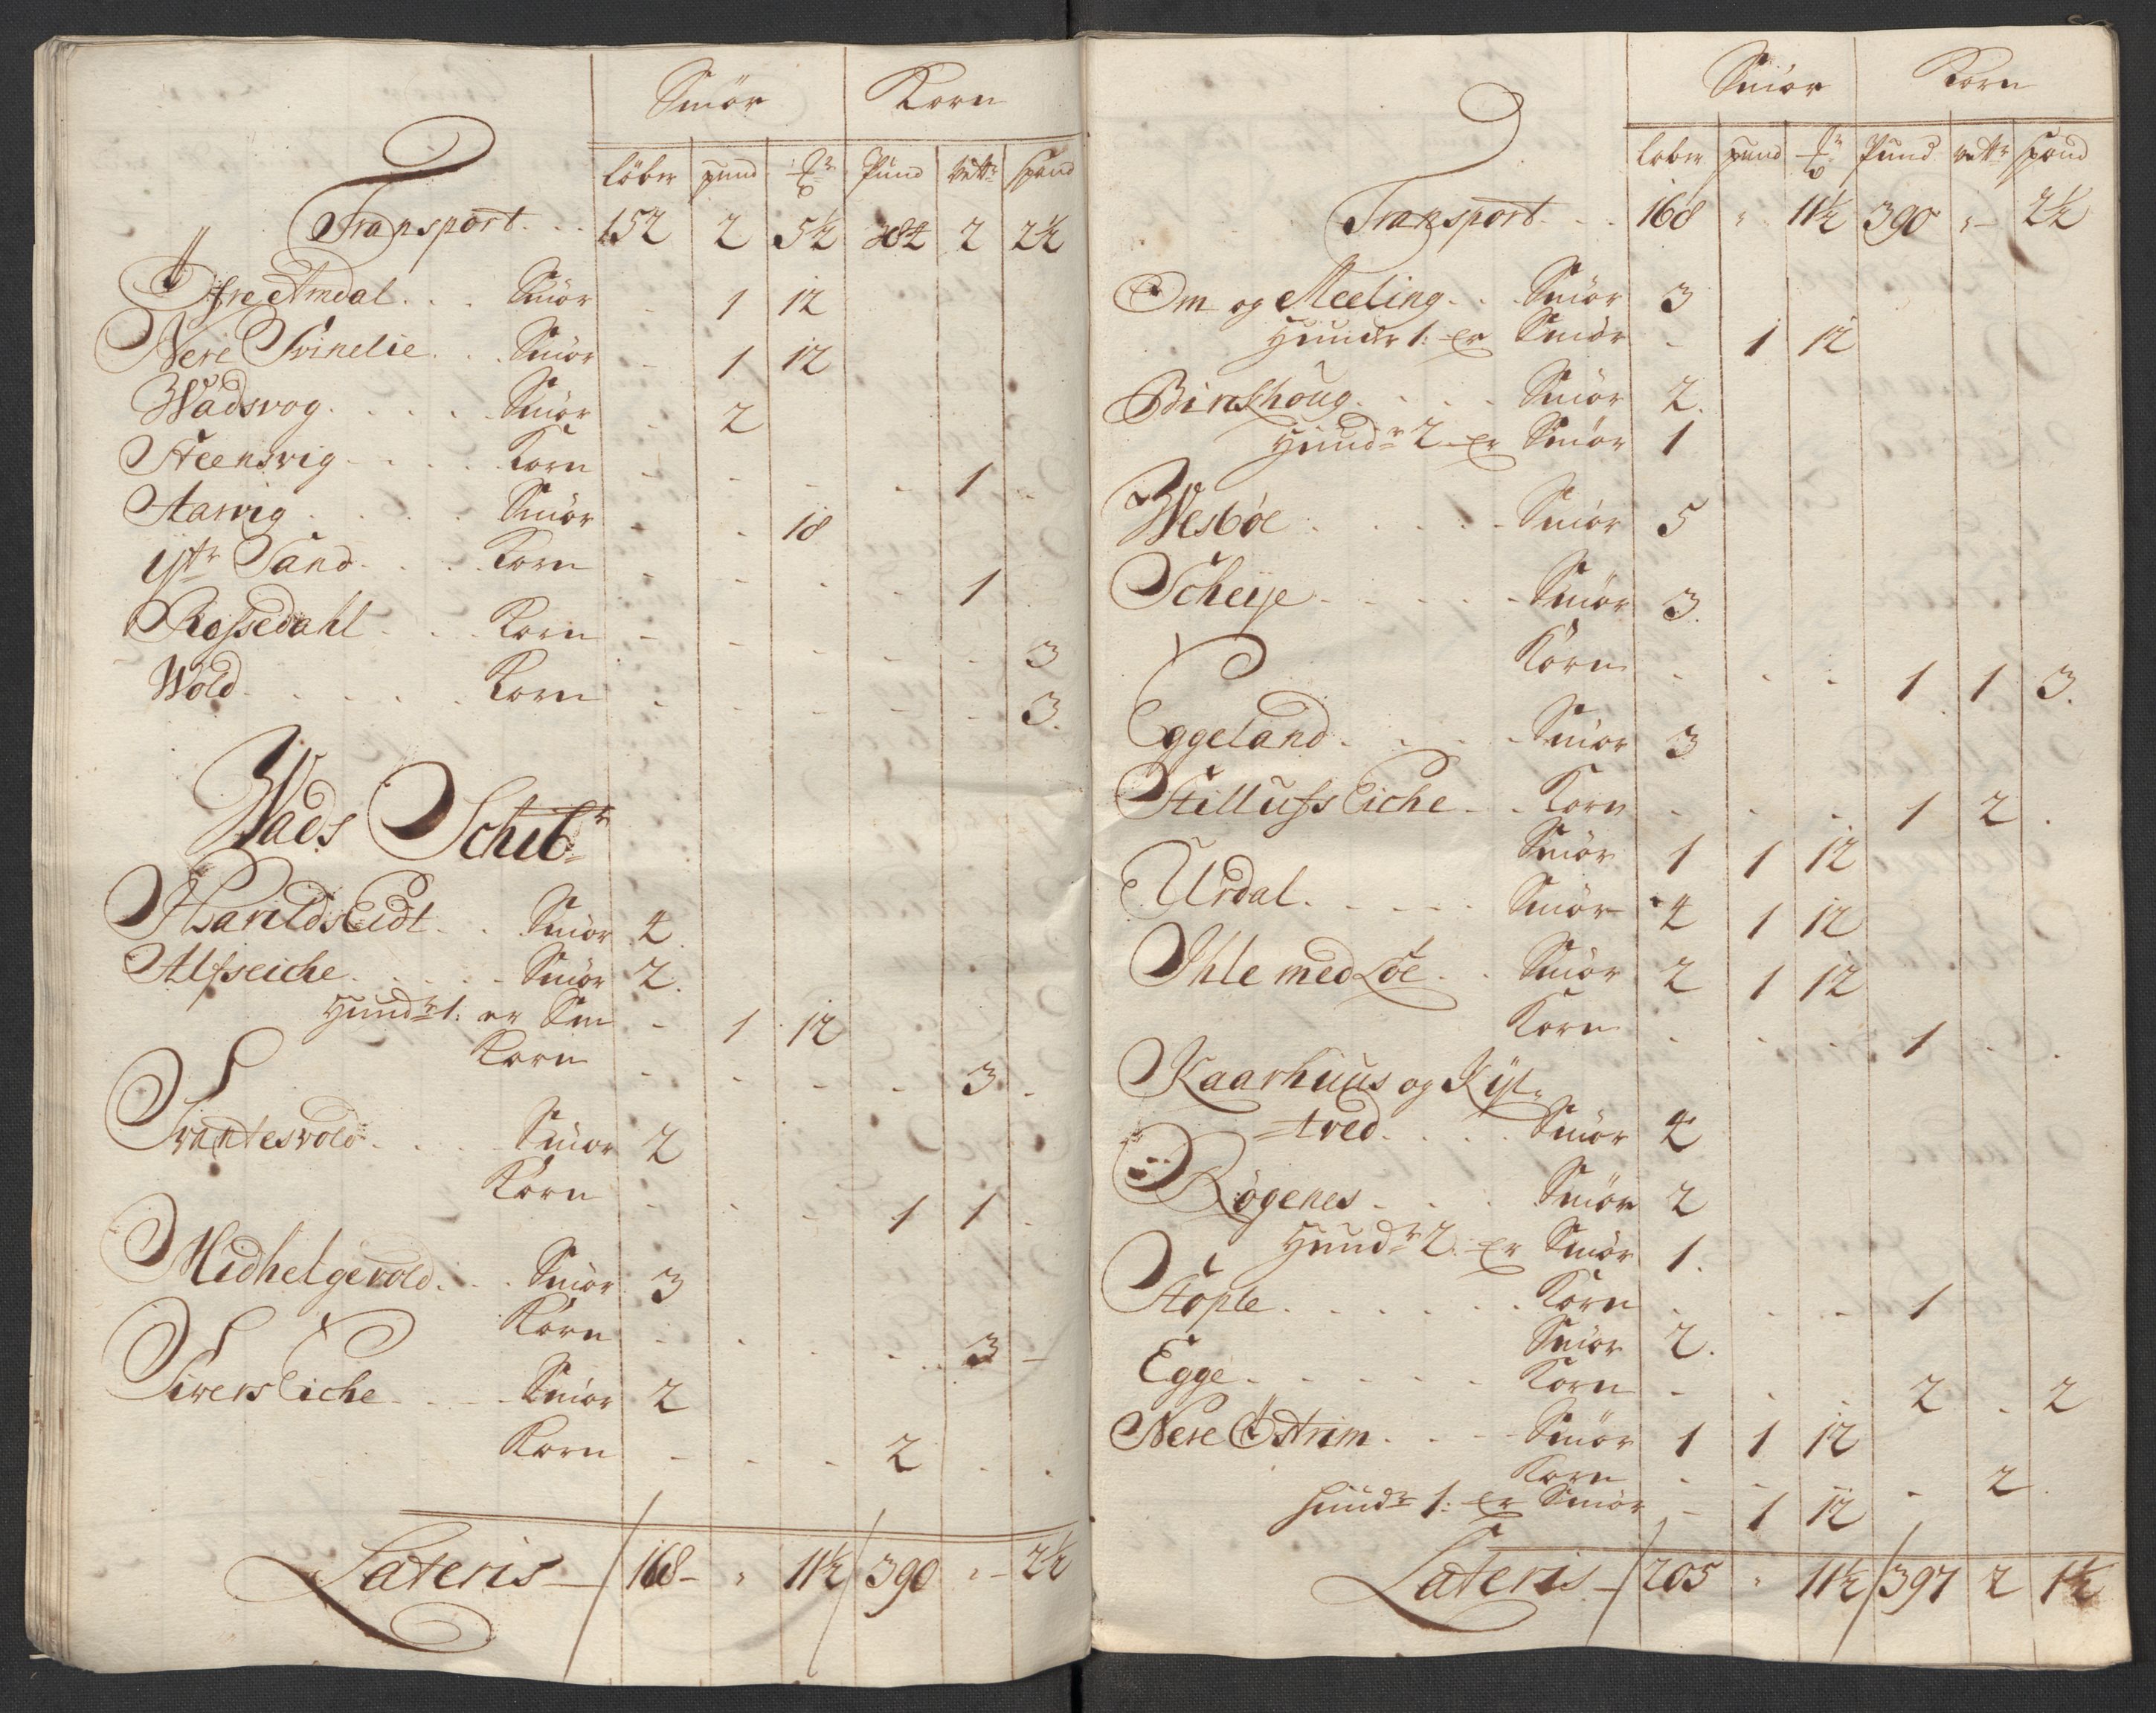 Smör Korn
löber pund Pund vett spand
Transport 152 2 5½ 384 2 2½
Öfre Amdal Smör - 1 12
Nere Svinelie Smör - 1 12
Wadsvog Smör - 2
Steensvig Korn - - - - 1 -
Aarvig Smör - - 18
ijstr Sand Korn - - - - 1
Rossedahl Korn - - - - - 3
Wold Korn - - - - - 3.
Wads Schibr
HarildsEidt Smör 4.
Alfseiche Smör 2.
Hundr 1: er Sm - 1 12
Korn - - - - 3 -
Svantesvold Smör 2
Korn - - - 1 1 -
Midhelgevold Smör 3
Korn - - - - 3 -
SiversEiche Smör 2
Korn - - - 2 - -
Lateris 168 - " 11½ 390 " - 2½
Smör Korn
löber pund Pund vettr spand
Transport 168 " 11½ 390 " - 2½
Øm og Meeling Smör 3
Hunder 1: er Smör - 1 12
Birckhoug Smör 2.
Hundr 2 er Smör 1
Wesböe Smör 5
Scheije Smör 3.
Korn - - - 1 1 3.
Eggeland Smör 3
Stillufs Eiche Korn - - - 1 2 .
Smör 1 1 12
Urdal Smör 4 1 12
Ihle med Löe Smör 2 1 12
Korn - - - 1 - -
Kaarhuus og Kijl=
=tved Smör 4
Rögenes Smör 2
Hundr 2. er Smör 1.
Stöple Korn - - - 1
Smör 2.
Egge Korn - - - 2 - 2
Nere Östrim Smör 1 1 12
Korn - - - - 2
hundr 1: er Smör - 1 12
Lateris 205 " 11½ 397 2 1½